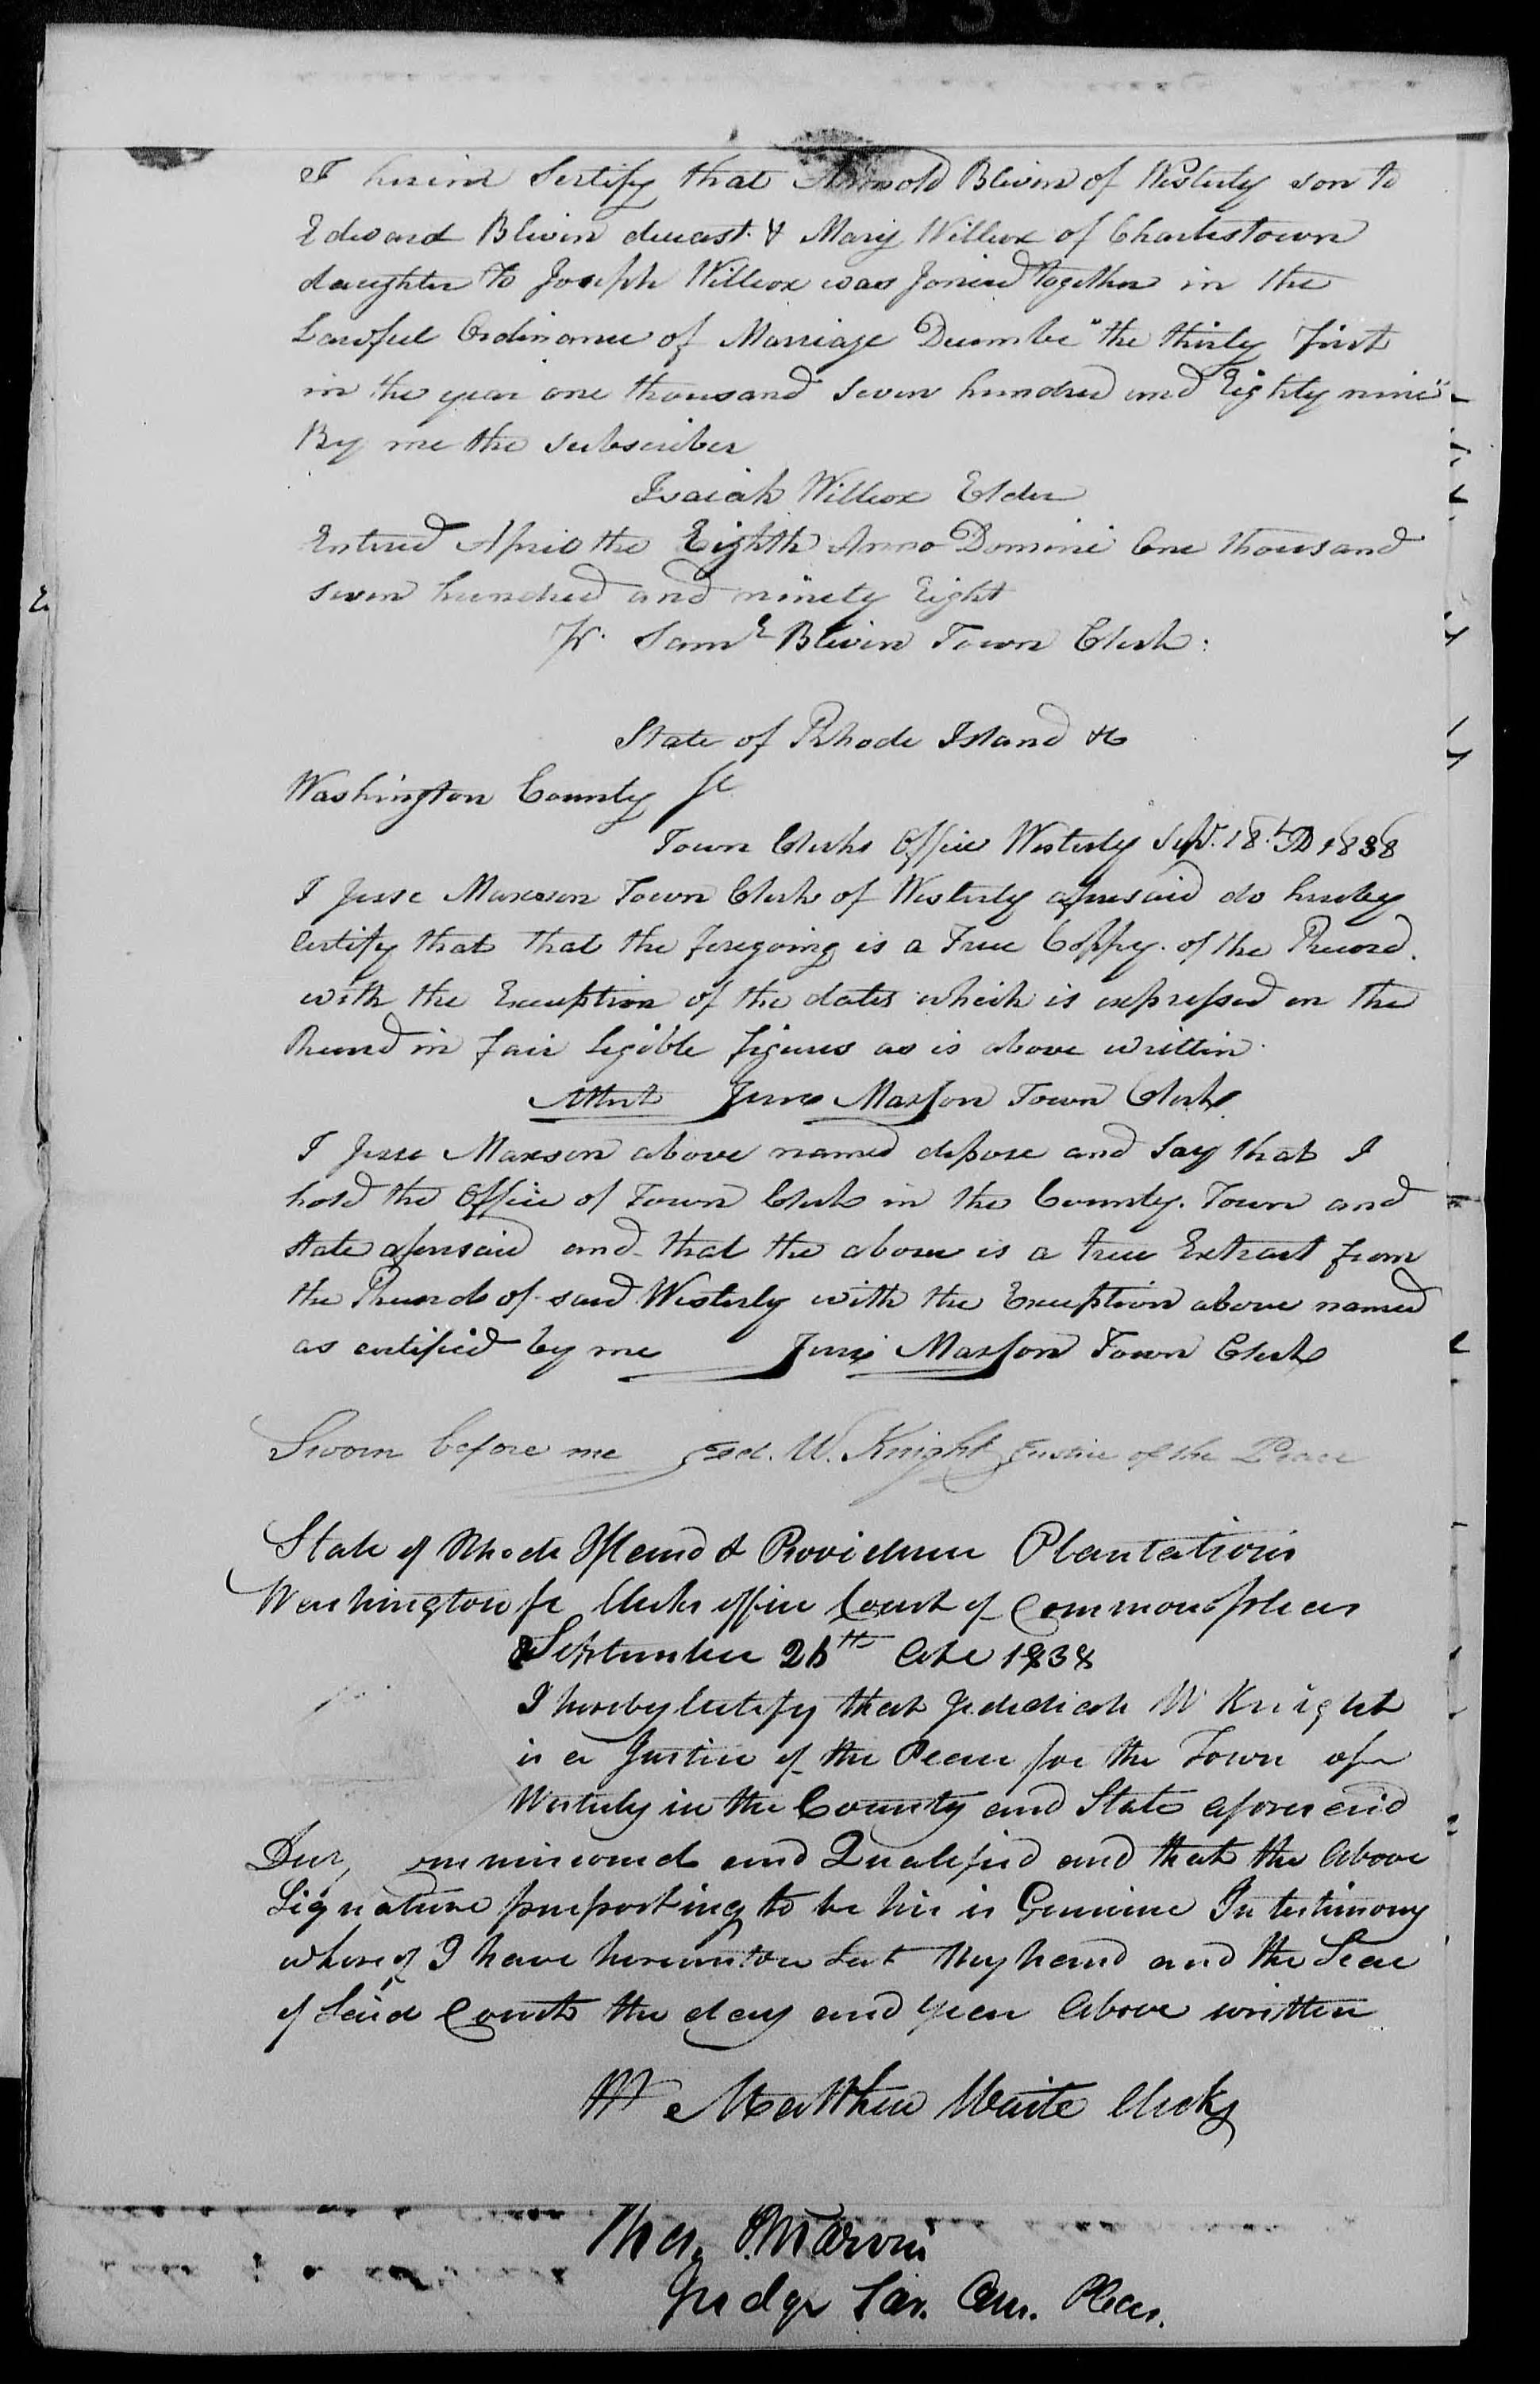 I herein Sertify that Arnold Blivin of Westerly son to
Edward Blivin deceast. & Mary Willcox of Charlestown
daughter to Joseph Willcox was Joined together in the
Lawful Ordinance of Marriage December "the thirty first
in the year one thousand seven hundred and Eighty nine"
By me the subscriber
Isaiah Willcox Elder
Entered April the Eighth Anno Domini One thousand
seven hundred and ninety Eight
Pr. Saml Blivin Town Clerk:
State of Rhode Island &c
Washington County Sc
Town Clerks Office Westerly Sept. 18. AD 1838
I Jesse Maxson Town Clerk of Westerly aforesaid do hereby
Certify that that the foregoing is a True Coppy. of the Record.
with the Exception of the dates which is expressed on the
Record in fair legible figures as is above written.
Attest Jesse Maxson Town Clerk
I Jesse Maxson above named depose and say that I
hold the Office of Town Clerk in the County. Town and
state aforesaid and that the above is a true Extract from
the Records of said Westerly with the Exception above named
as certified by me Jesse Maxson Town Clerk
Sworn before me Jed. W. Knight Justice of the Peace
State of Rhode Island & Providence Plantations
Washington Sc Clerks office Court of Common pleas
September 26th 1838
I hereby Certify that Jedediah W Knight
is a Justice of the Peace for the Town of
Westerly in the County and State aforesaid
Duly Commissioned and Qualified and that the Above
Signature purporting to be his is Genuine In testimony
whereof I have hereunto Set my hand and the Seal
of Said Court the day and year Above written
Matthew Waite Clerk
Thos. Marvin
Judge Sar. Com. Pleas.